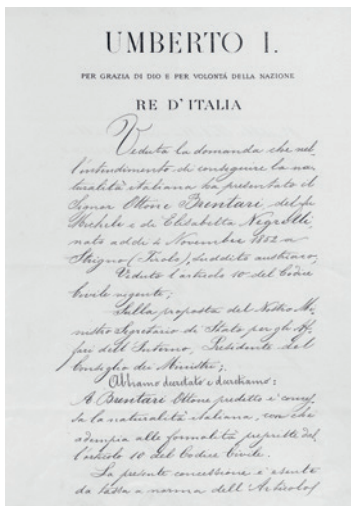 UMBERTO I.
PER GRAZIA DI DIO E PER VOLONTÁ DELLA NAZIONE
RE D'ITALIA
Veduta la domanda che nel-
l'intendimento di conseguire la na-
turalità italiana ha presentato il
Signor Ottone Brentari, del fu
Michele e di Elisabetta Negrelli,
nato addì 4 Novembre 1852 a
Strigno (Tirolo), suddito austriaco;
Veduto l'articolo 10 del Codice
Civile vigente;
Sulla proposta del Nostro Mi-
nistro Segretario di Stato per gli Af-
fari dell'Interno, Presidente del
Consiglio dei Ministri;
Abbiamo decretato e decretiamo:
A Brentari Ottone predetto è conces-
sa la naturalità italiana, con che
adempia alle formalità prescritte dal-
l'articolo 10 del Codice Civile.
La presente concessione è esente
da tassa a norma dell'Articolo